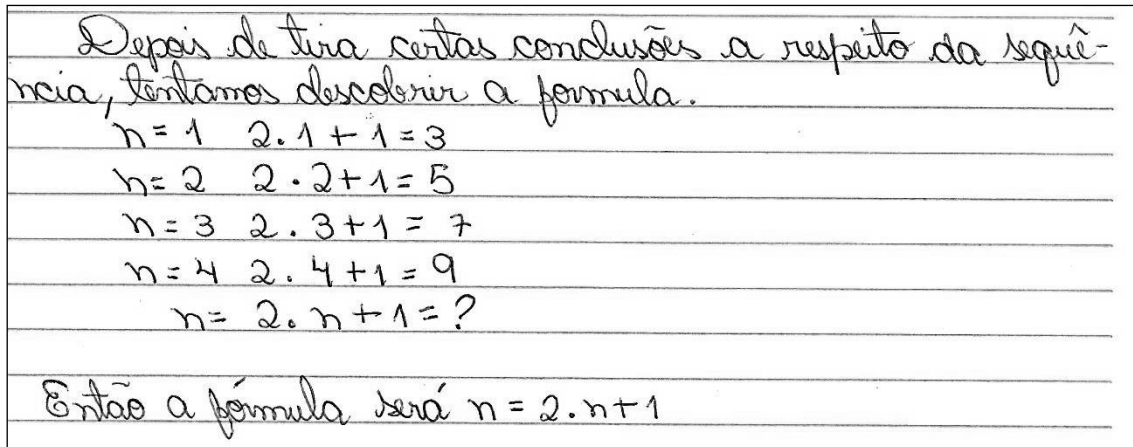 Depois de tira certas conclusões a respeito da sequê-
ncia, tentamos descobrir a formula.
n = 1 2.1 + 1 = 3
n = 2 2.2 + 1 = 5
n = 3 2.3 + 1 = 7
n = 4 2.4 + 1 = 9
n = 2.n + 1 = ?
Então a fórmula será n = 2.n + 1